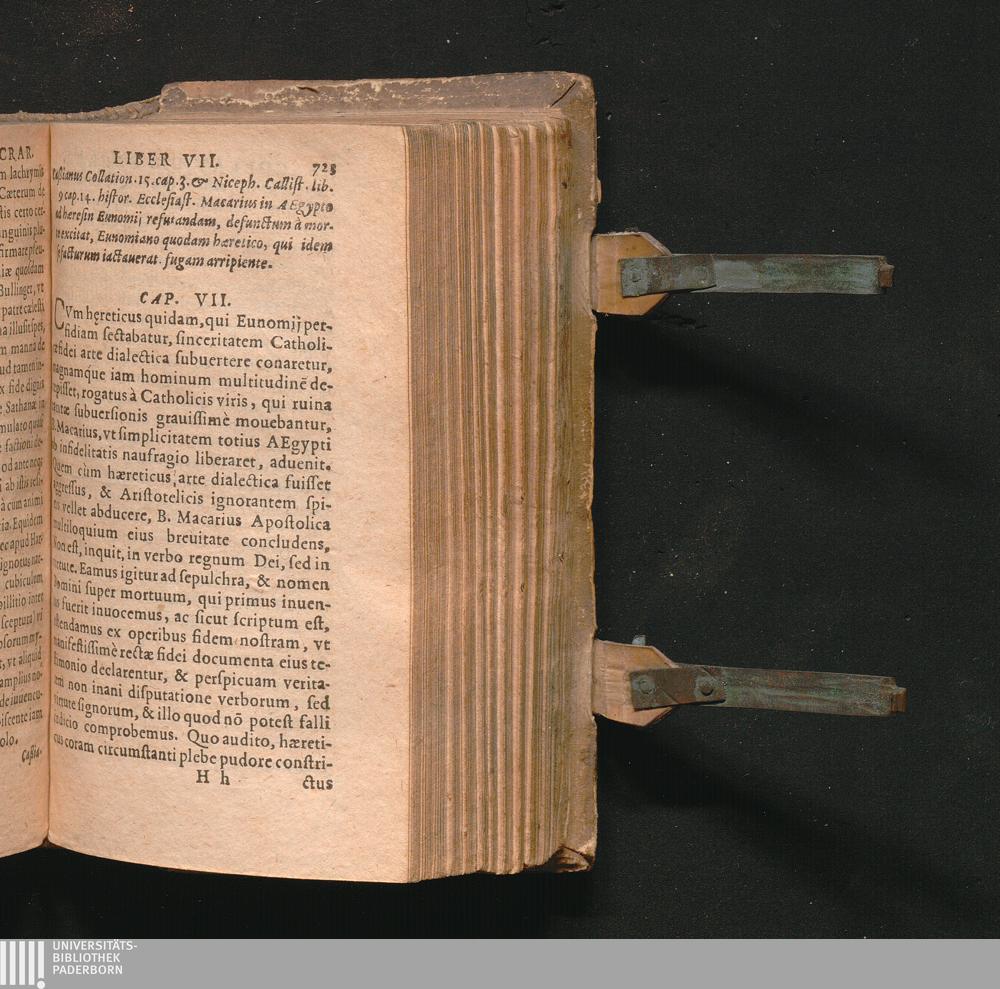 CRAR.
m lachrymis
Cæterum de
stis certo cer-
anguinis pul-
firmare pseu-
iæ quosdam
Bullinger, vt
patre cælesti
na illusit ipse,
m manna de
ud tamen in-
x fide dignis
e Sathanæ in
mulato quasi
e factiou de-
od ante nogi
i ab istis resi-
à cùm animi
tia. Equidem
ec apud Hæ-
ignotus nar-
cubiculum
pillitio inter
sceptura vt
psorum my-
t, vt aliquid
amplius no-
de iuuencu-
piscente iam
olo.
Cassia-
LIBER VII. 723
Cassianus Collation. 15. cap. 3. & Niceph. Callist. lib.
9 cap. 14. histor. Ecclesiast. Macarius in AEgypto
ad hæresin Eunomij refutandam, defunctum à mor-
te excitat, Eunomiano quodam hæretico, qui idem
se facturum iactauerat. fugam arripiente.
CAP. VII.
CVm hęreticus quidam, qui Eunomij per-
fidiam sectabatur, sinceritatem Catholi-
cæ fidei arte dialectica subuertere conaretur,
magnamque iam hominum multitudinē de-
cepisset, rogatus à Catholicis viris, qui ruina
tantæ subuersionis grauissimè mouebantur,
B. Macarius, vt simplicitatem totius AEgypti
ab infidelitatis naufragio liberaret, aduenit.
Quem cùm hæreticus arte dialectica fuisset
aggressus, & Aristotelicis ignorantem spi-
nis vellet abducere, B. Macarius Apostolica
multiloquium eius breuitate concludens,
Non est, inquit, in verbo regnum Dei, sed in
virtute. Eamus igitur ad sepulchra, & nomen
Domini super mortuum, qui primus inuen-
tus fuerit inuocemus, ac sicut scriptum est,
ostendamus ex operibus fidem nostram, vt
manifestissimè rectæ fidei documenta eius te-
stimonio declarentur, & perspicuam verita-
tem non inani disputatione verborum, sed
virtute signorum, & illo quod nō potest falli
iudicio comprobemus. Quo audito, hæreti-
cus coram circumstanti plebe pudore constri-
H h ctus
UNIVERSITÄTS-
BIBLIOTHEK
PADERBORN